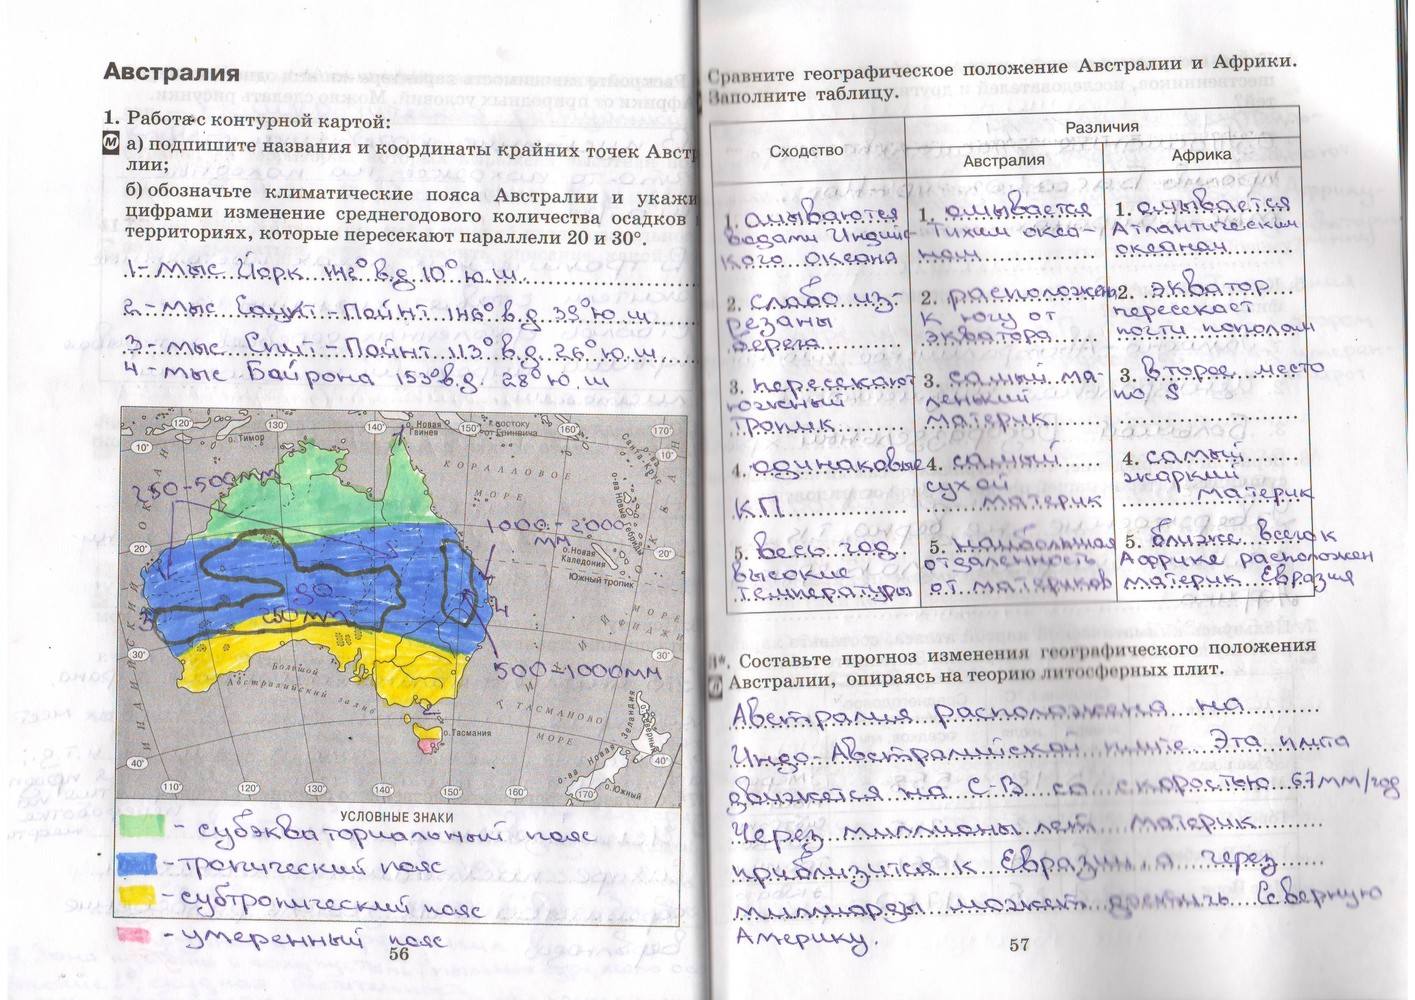 Австралия
1. Работа с контурной картой:
М а) подпишите названия и координаты крайних точек Австр
лии;
б) обозначьте климатические пояса Австралии и укажи
цифрами изменение среднегодового количества осадков
территориях, которые пересекают параллели 20 и 30°.
1- Мыс Йорк в.д. 10° ю.ш.
2.- Мыс Саует - Пойнт 146° в.д. 39° ю.ш.
3 - мыс Стип - Пойнт 113° в.д. 26° ю.ш.
4.- мыс Байрона 153° в.д. 28° ю.ш
120° 130° 140° 150° 160° 170°
о. Тимор
о. Новая Гвинея
к востоку от Гринвича
10° 10°
Санта-Крус
КОРАЛЛОВОЕ
МОРЕ
о-ва Новые Гебриды
250-500мм
1000-2000
мм
20° 20°
о. Новая Каледония
Южный тропик
МОРЕ ФИДЖИ
3
4
250мм
30° 30°
500-1000мм
Большой
Австралийский залив
ИНДИЙСКИЙ ОКЕАН
ТАСМАНОВО
МОРЕ
2
о. Тасмания
Новая Зеландия
Северный
о-ва
о. Южный
40° 40°
110° 120° 130° 140° 150° 160° 170°
УСЛОВНЫЕ ЗНАКИ
- субэкваториальный пояс
- тропический пояс
- субтропический пояс
- умеренный пояс
56
Сравните географическое положение Австралии и Африки.
Заполните таблицу.
Сходство
Различия
Австралия
Африка
1. омываются
водами Индийс-
кого океана
1. омывается
Тихим океа-
ном
1. омывается
Атлантическим
океаном.
2. слабо из-
резаны
берега
2. расположен
к югу от
экватора
2. экватор
пересекает
почти пополам
3. пересекает
южный
тропик
3. самый ма-
ленький
материк
3. второе место
по S
4. одинаковые
КП
4. самый
сухой
материк
4. самый
жаркий
материк
5. весь год
высокие
температуры
5. наибольшая
отдаленность
от материков
5. ближе всего к
Африке расположен
материк Евразия
3*. Составьте прогноз изменения географического положения
Австралии, опираясь на теорию литосферных плит.
Австралия расположена на
Индо-Австралийской плите. Эта плита
движется на С-В со скоростью 67мм/год
Через миллионы лет материк
приблизится к Евразии, а через
миллиарды может достичь Северную
Америку.
57